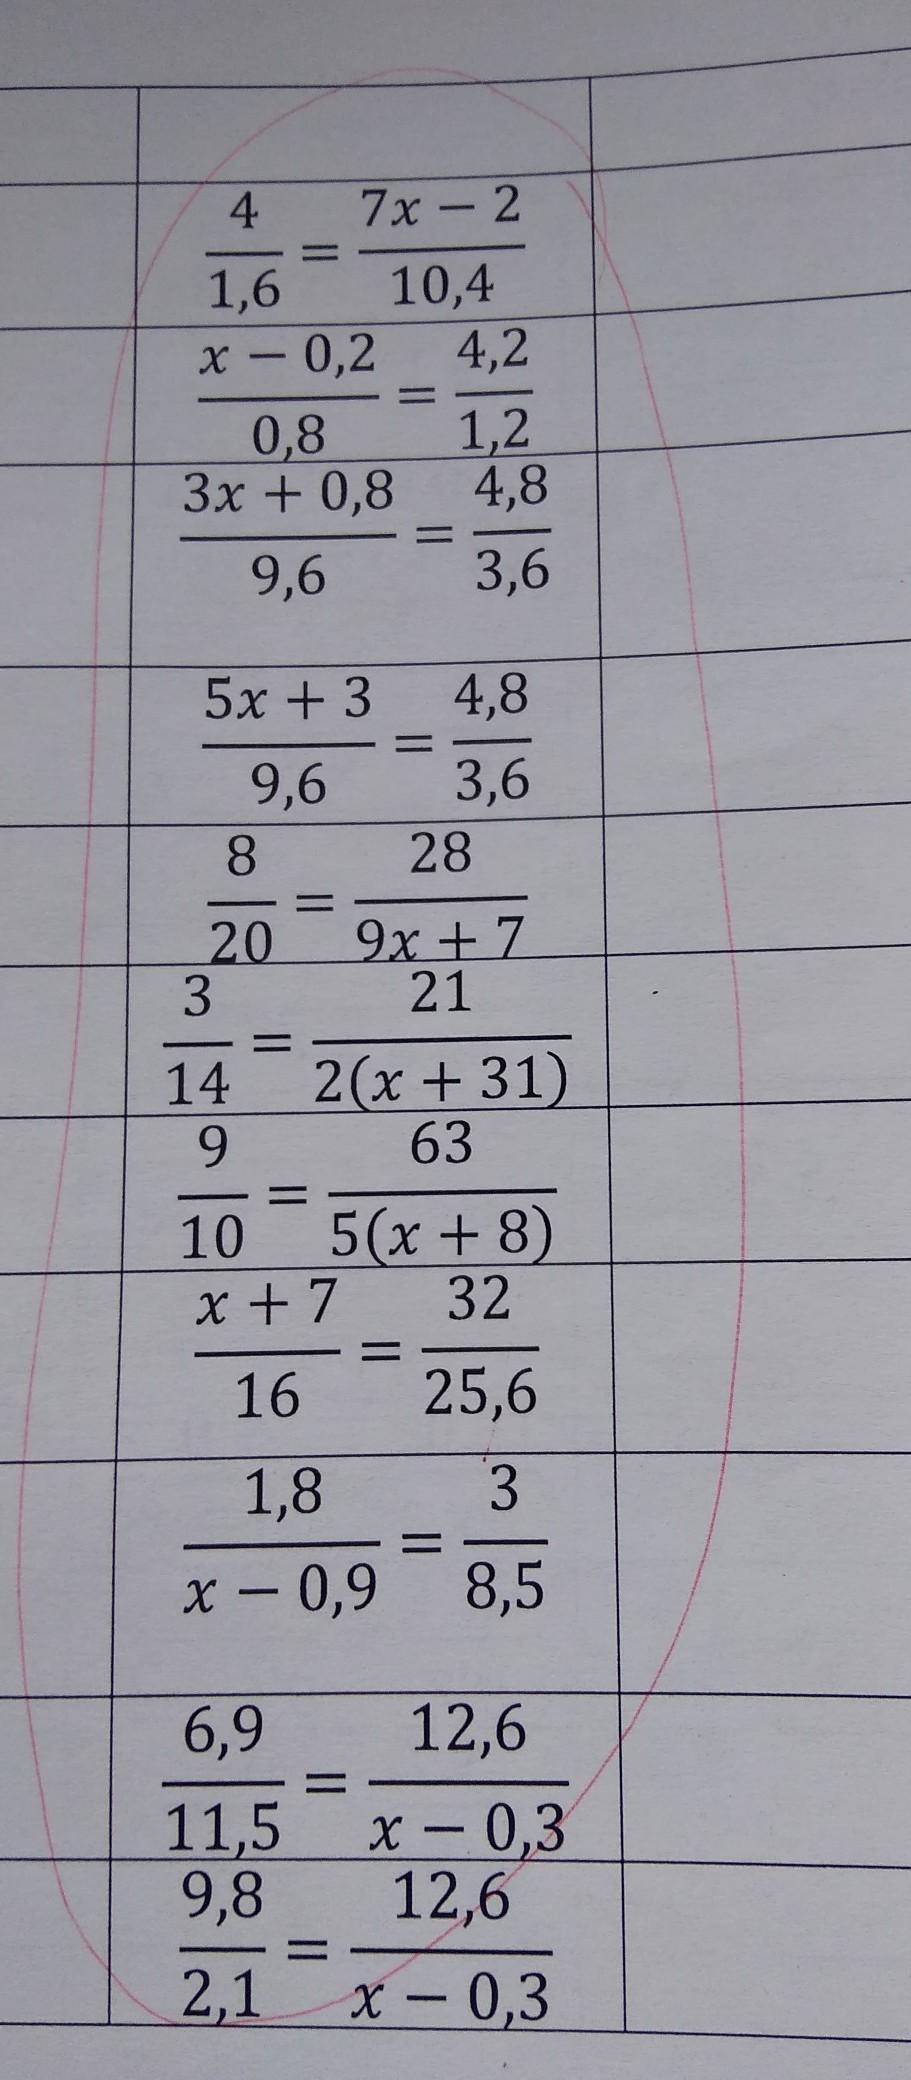 4/1,6 = (7x − 2)/10,4
(x − 0,2)/0,8 = 4,2/1,2
(3x + 0,8)/9,6 = 4,8/3,6
(5x + 3)/9,6 = 4,8/3,6
8/20 = 28/(9x + 7)
3/14 = 21/(2(x + 31))
9/10 = 63/(5(x + 8))
(x + 7)/16 = 32/25,6
1,8/(x − 0,9) = 3/8,5
6,9/11,5 = 12,6/(x − 0,3)
9,8/2,1 = 12,6/(x − 0,3)